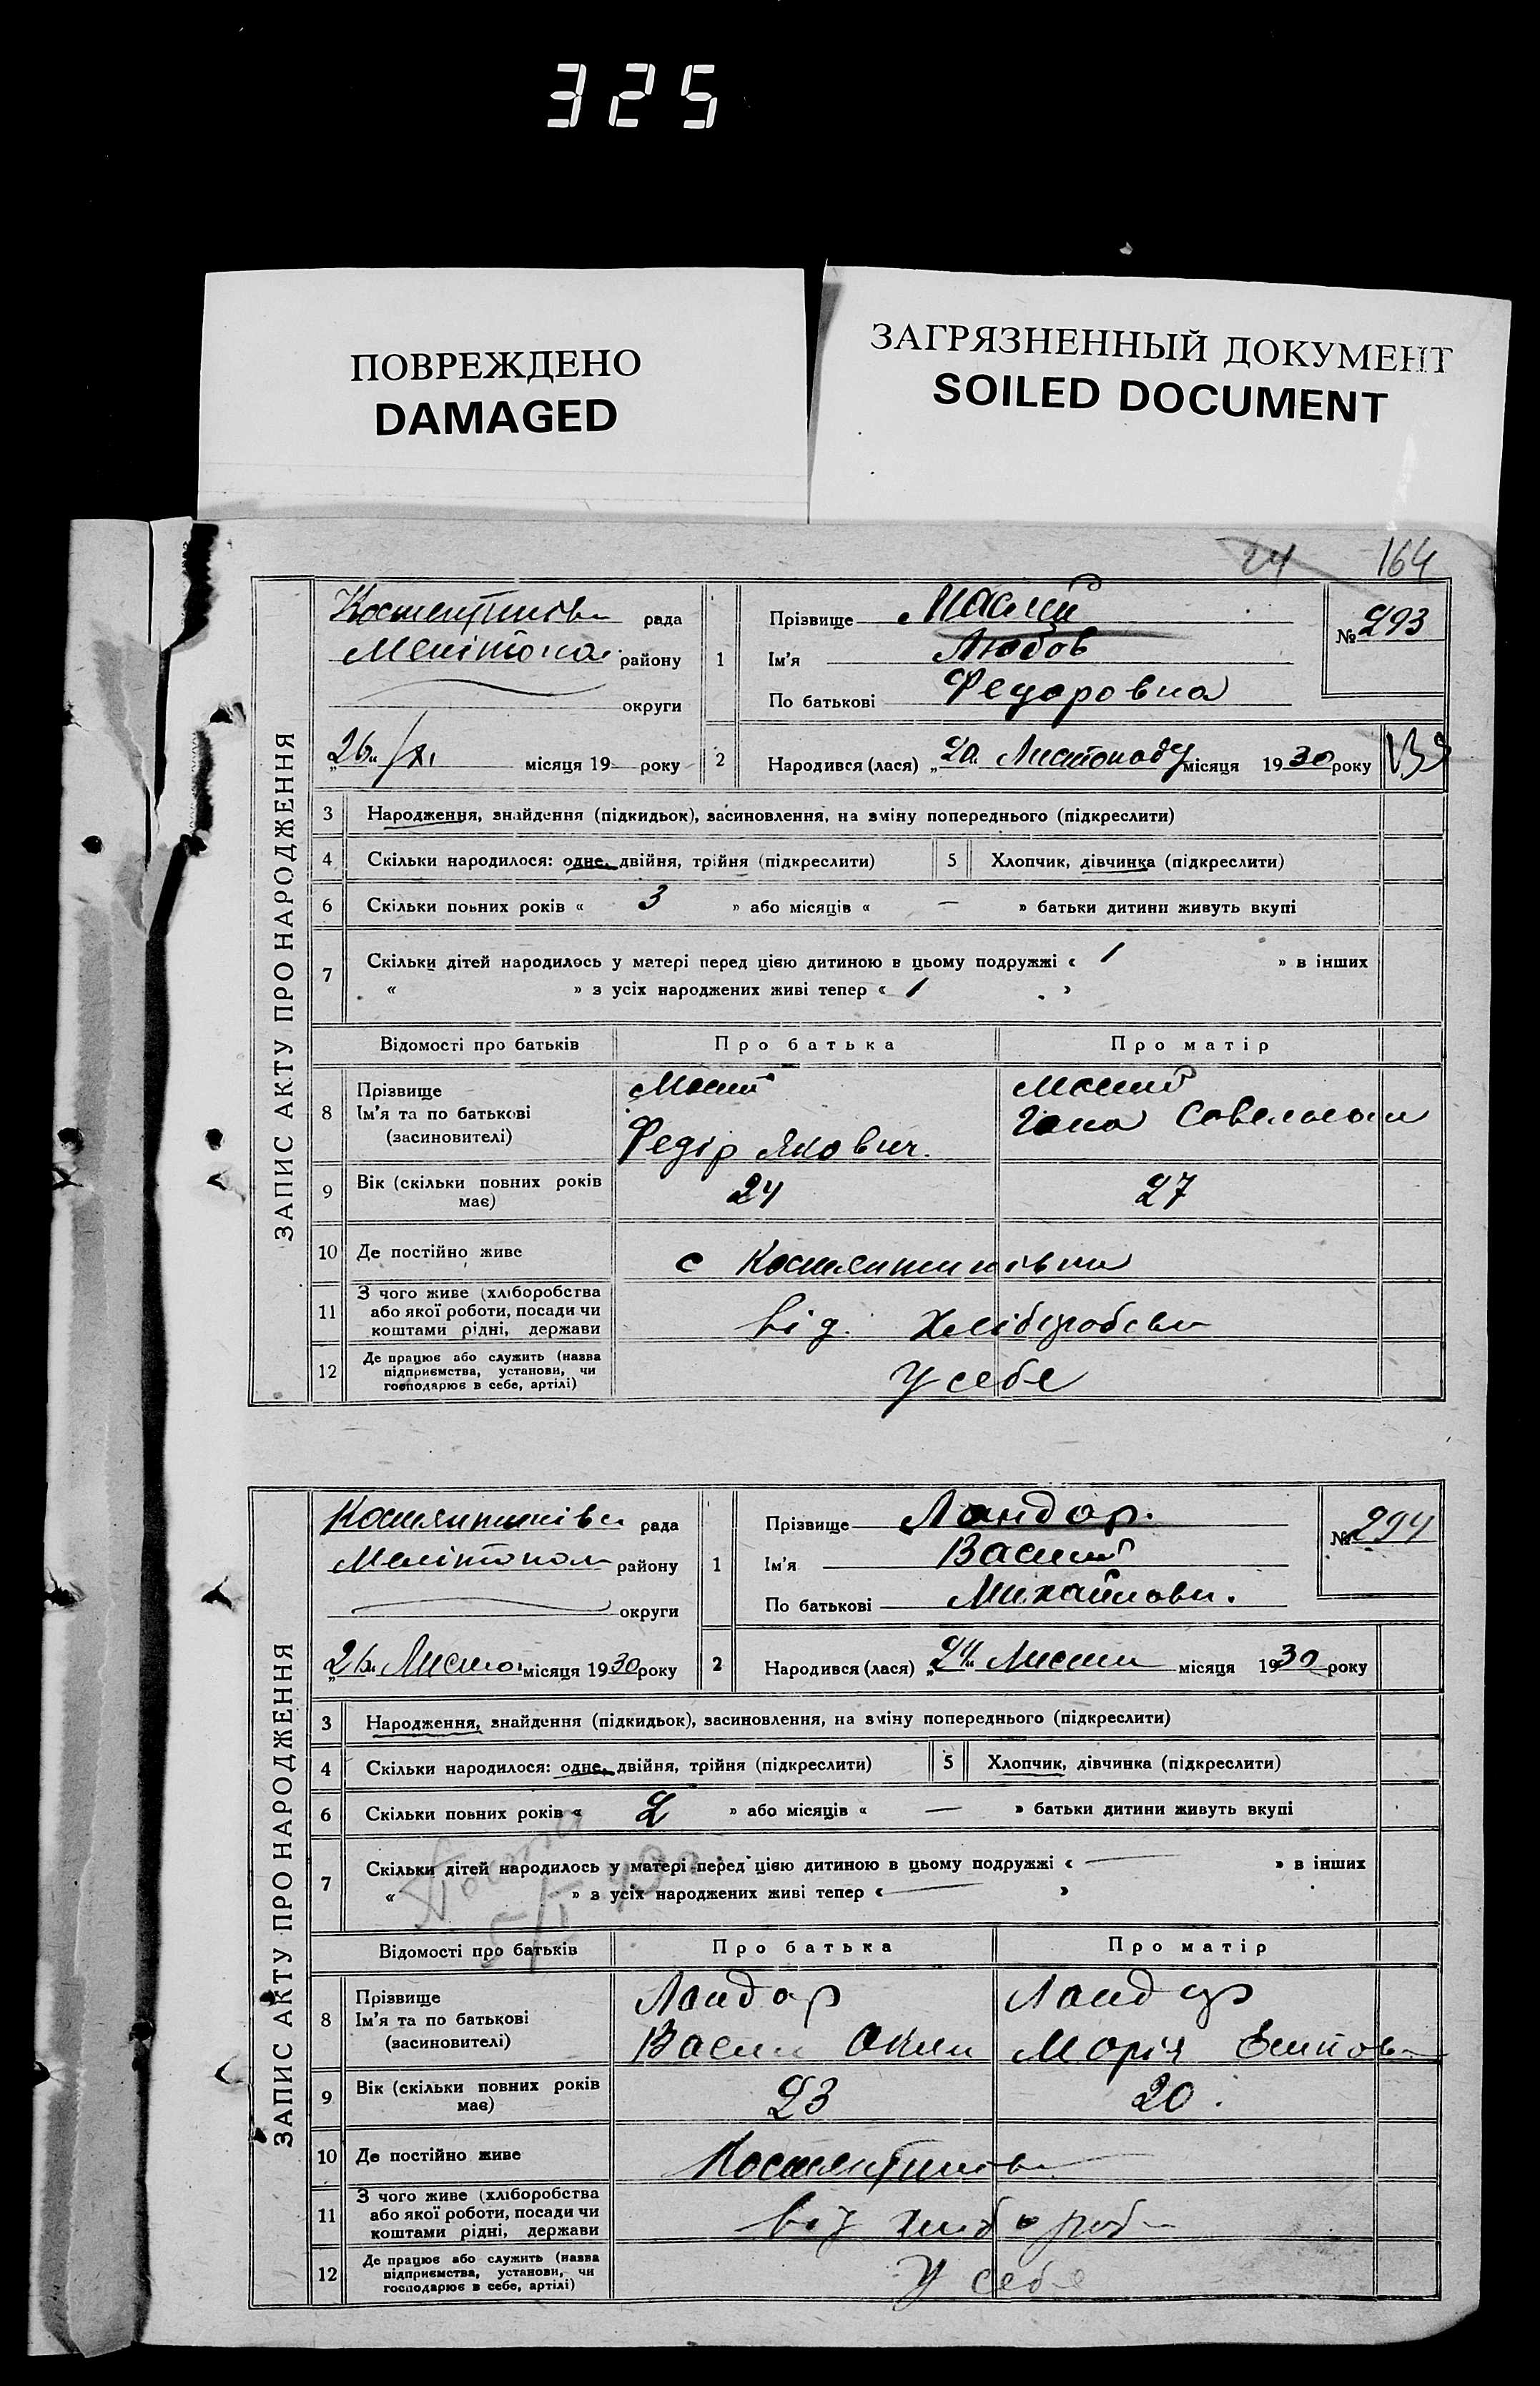 325
ПОВРЕЖДЕНО
DAMAGED
ЗАГРЯЗНЕННЫЙ ДОКУМЕНТ
SOILED DOCUMENT
24 164
ЗАПИС АКТУ ПРО НАРОДЖЕННЯ
рада
району
округи
„26“ /XI місяця 19 року
1 Прізвище
Ім'я Любов
По батькові Федоровна
№ 293
2 Народився (лася) „20“ Листопаду місяця 1930 року
3 Народження, знайдення (підкидьок), засиновлення, на зміну попереднього (підкреслити)
4 Скільки народилося: одне, двійня, трійня (підкреслити) 5 Хлопчик, дівчинка (підкреслити)
6 Скільки повних років « 3 » або місяців « — » батьки дитини живуть вкупі
7 Скільки дітей народилось у матері перед цією дитиною в цьому подружжі « 1 » в інших
« » з усіх народжених живі тепер « 1 »
Відомості про батьків Про батька Про матір
8 Прізвище
Ім'я та по батькові
(засиновителі)
Федір Якович
9 Вік (скільки повних років має) 24 27
10 Де постійно живе с Костянтинівка
11 З чого живе (хліборобства або якої роботи, посади чи коштами рідні, держави від хліборобства
12 Де працює або служить (назва підприємства, установи, чи господарює в себе, артілі) У себе
ЗАПИС АКТУ ПРО НАРОДЖЕННЯ
Костянтинівн рада
Мелітопол району
округи
„26“ Листоп місяця 1930 року
1 Прізвище Ландар.
Ім'я Василий
По батькові Михайлови.
№ 294
2 Народився (лася) „24“ місяця 1930 року
3 Народження, знайдення (підкидьок), засиновлення, на зміну попереднього (підкреслити)
4 Скільки народилося: одне, двійня, трійня (підкреслити) 5 Хлопчик, дівчинка (підкреслити)
6 Скільки повних років « 2 » або місяців « — » батьки дитини живуть вкупі
7 Скільки дітей народилось у матері перед цією дитиною в цьому подружжі « — » в інших
« » з усіх народжених живі тепер « — »
Відомості про батьків Про батька Про матір
8 Прізвище
Ім'я та по батькові
(засиновителі)
Ландар Ландар
Марія
9 Вік (скільки повних років має) 23 20
10 Де постійно живе Костянтинівн
11 З чого живе (хліборобства або якої роботи, посади чи коштами рідні, держави від хлібороб
12 Де працює або служить (назва підприємства, установи, чи господарює в себе, артілі) У себе